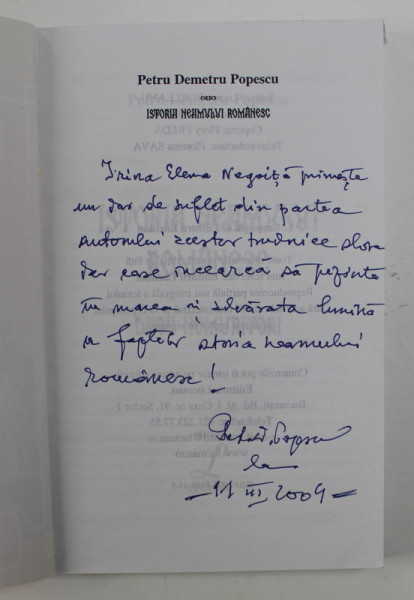 Petru Demetru Popescu
ISTORIA NEAMULUI ROMÂNESC
Irina Elena Negoiță primește
un dar de suflet din partea
autorului acestor trudnice
dar care încearcă să prezinte
în marea și adevărata lumină
a faptelor istoria neamului
românesc!
Petru D. Popescu
11 III 2009